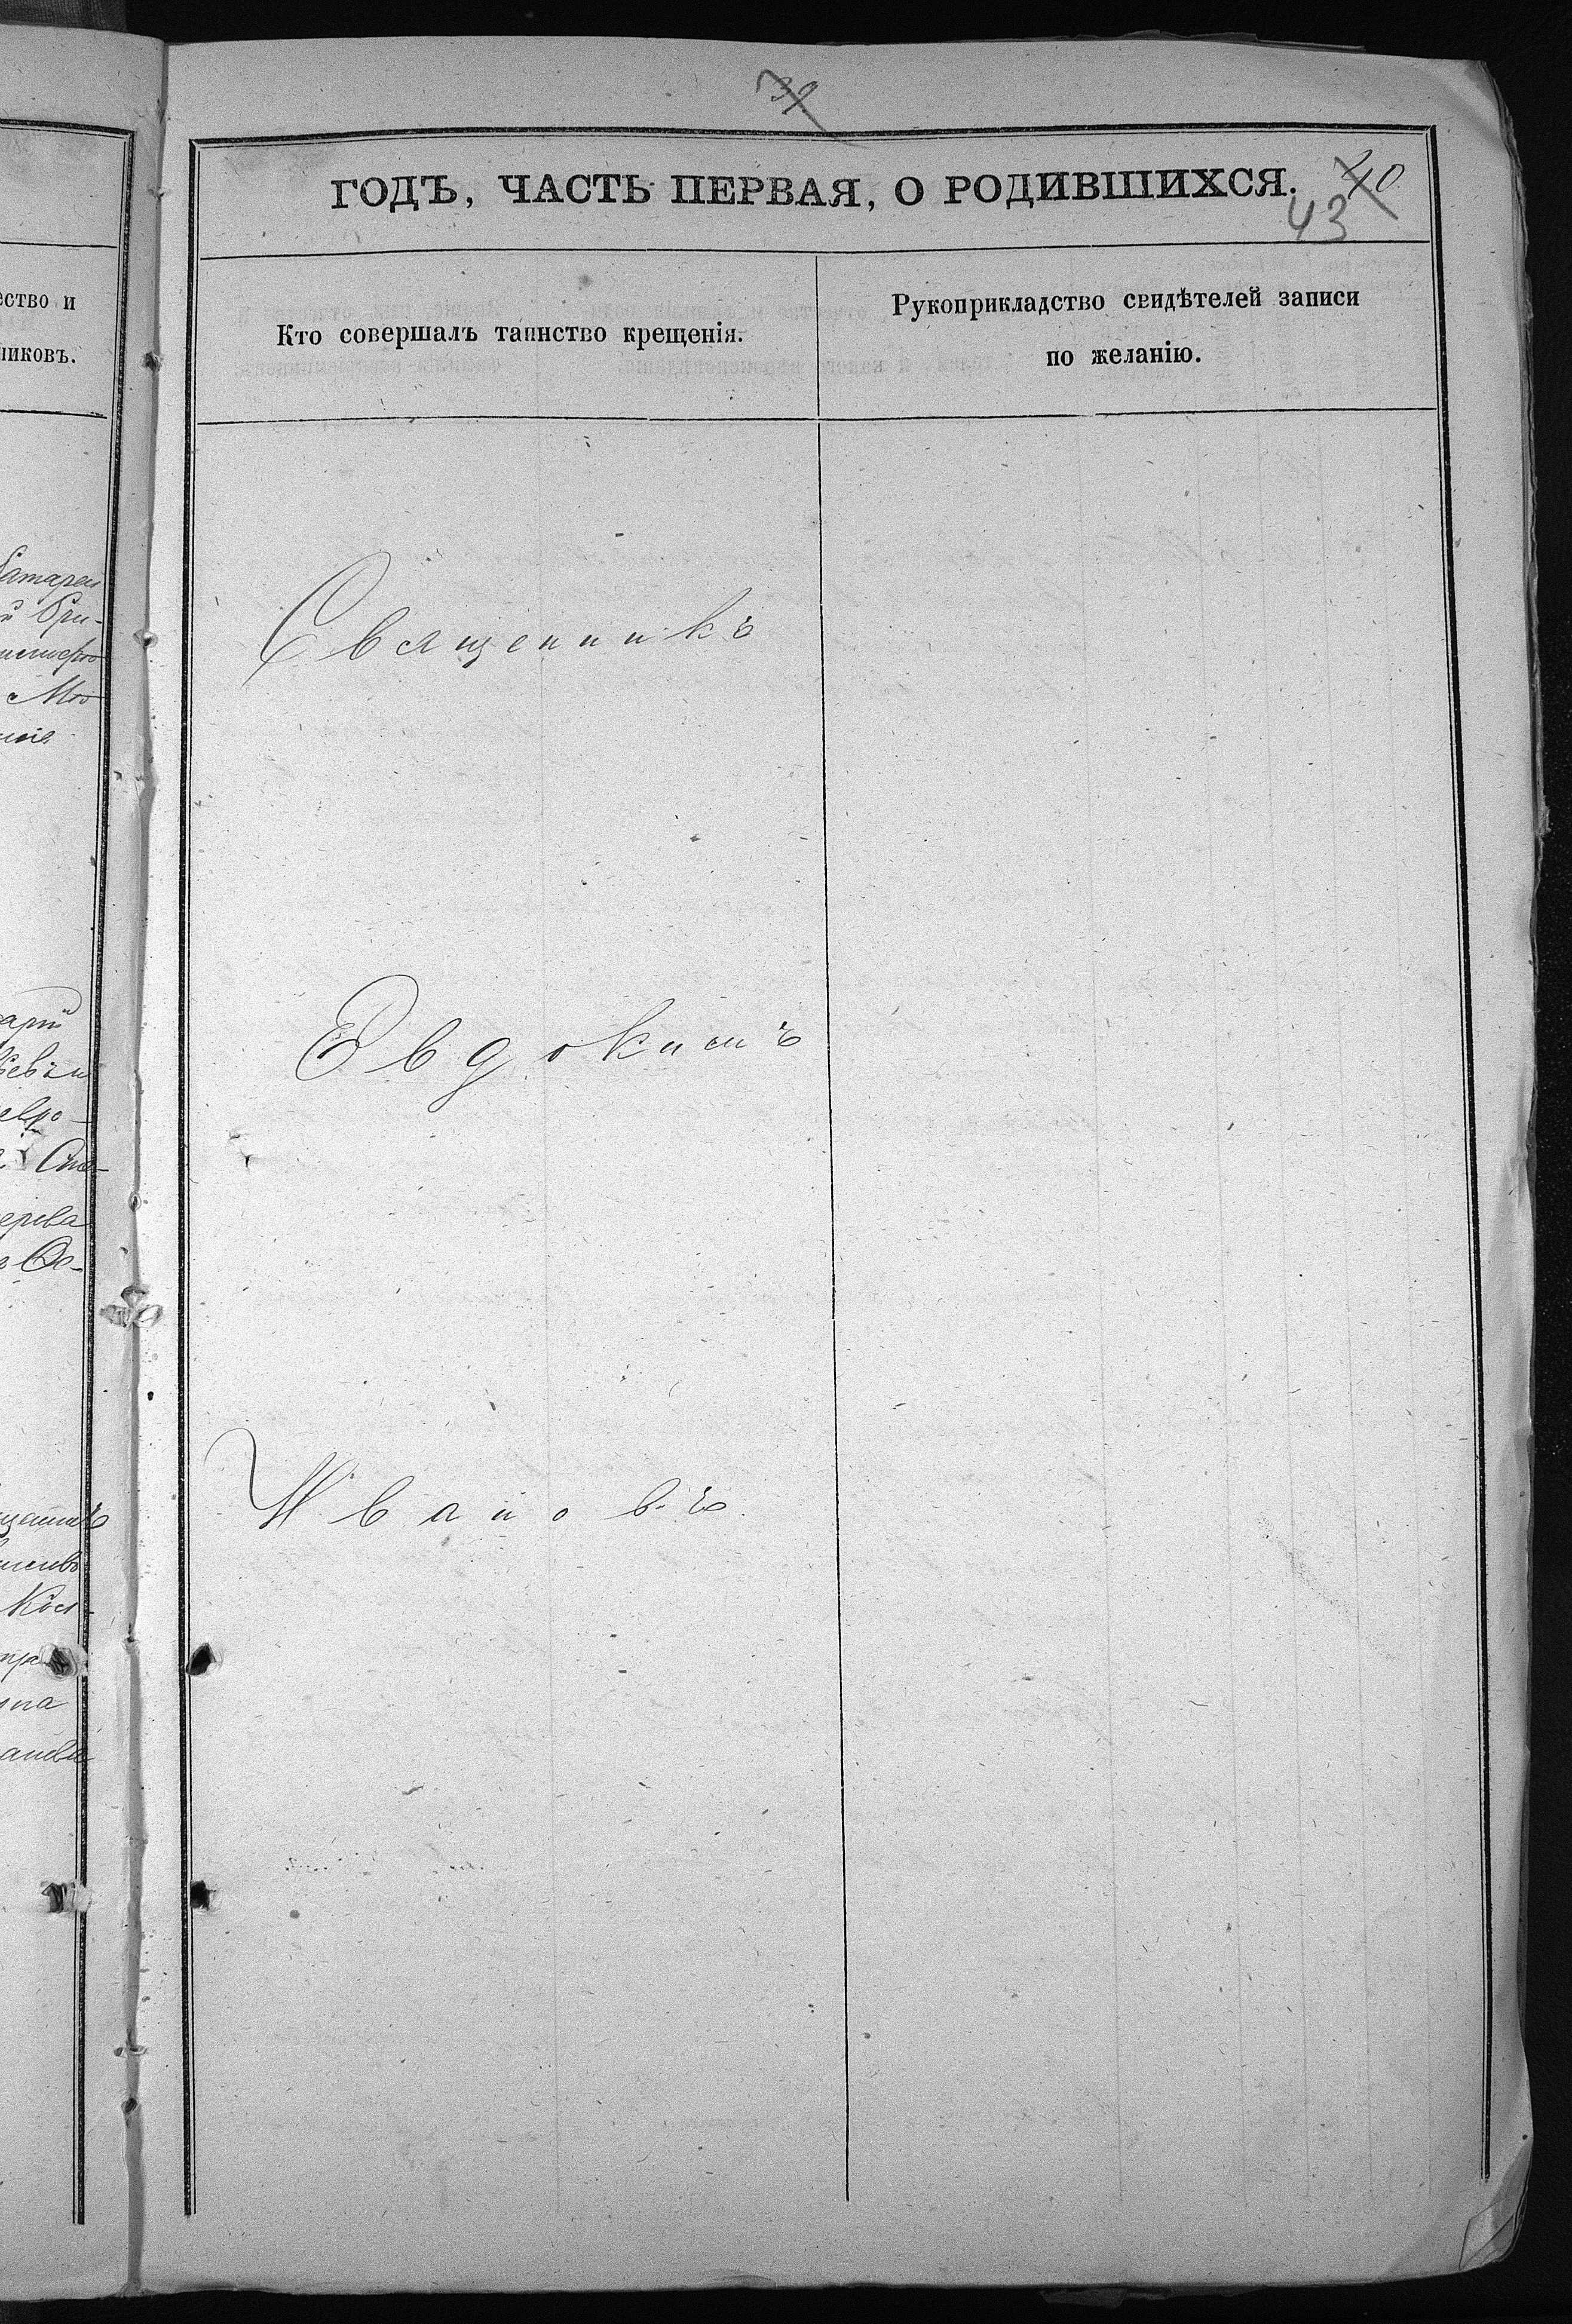 39
ГОДЪ, ЧАСТЬ ПЕРВАЯ, О РОДИВШИХСЯ.
40
43
ество и
никовъ.
Кто совершалъ таинство крещенія.
Рукоприкладство свидѣтелей записи
по желанію.
Священникъ
Евдокимъ
Ивановъ